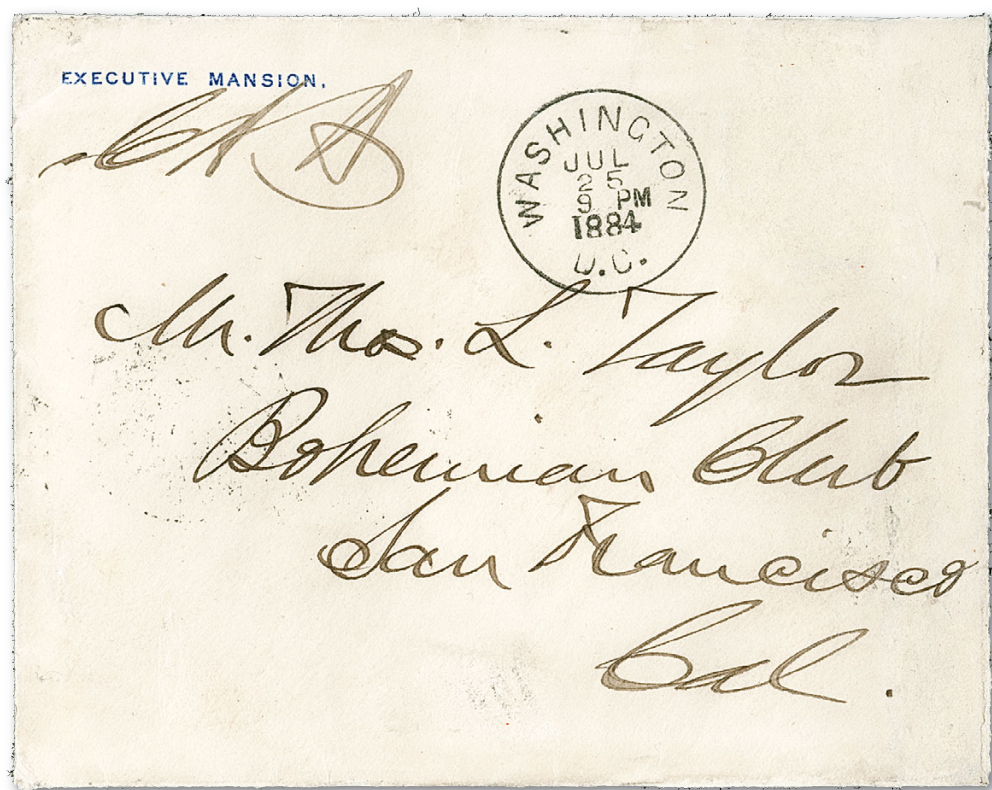 EXECUTIVE MANSION.
C A A
WASHINGTON
JUL
25
9 PM
1884
D.C.
Mr. Thos. L. Taylor
Bohemian Club
San Francisco
Cal.